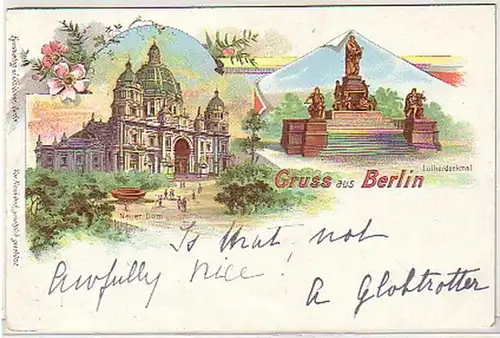 Gruss aus Berlin
Lutherdenkmal
Neuer Dom
Is that not
Awfully nice!
A Globtrotter